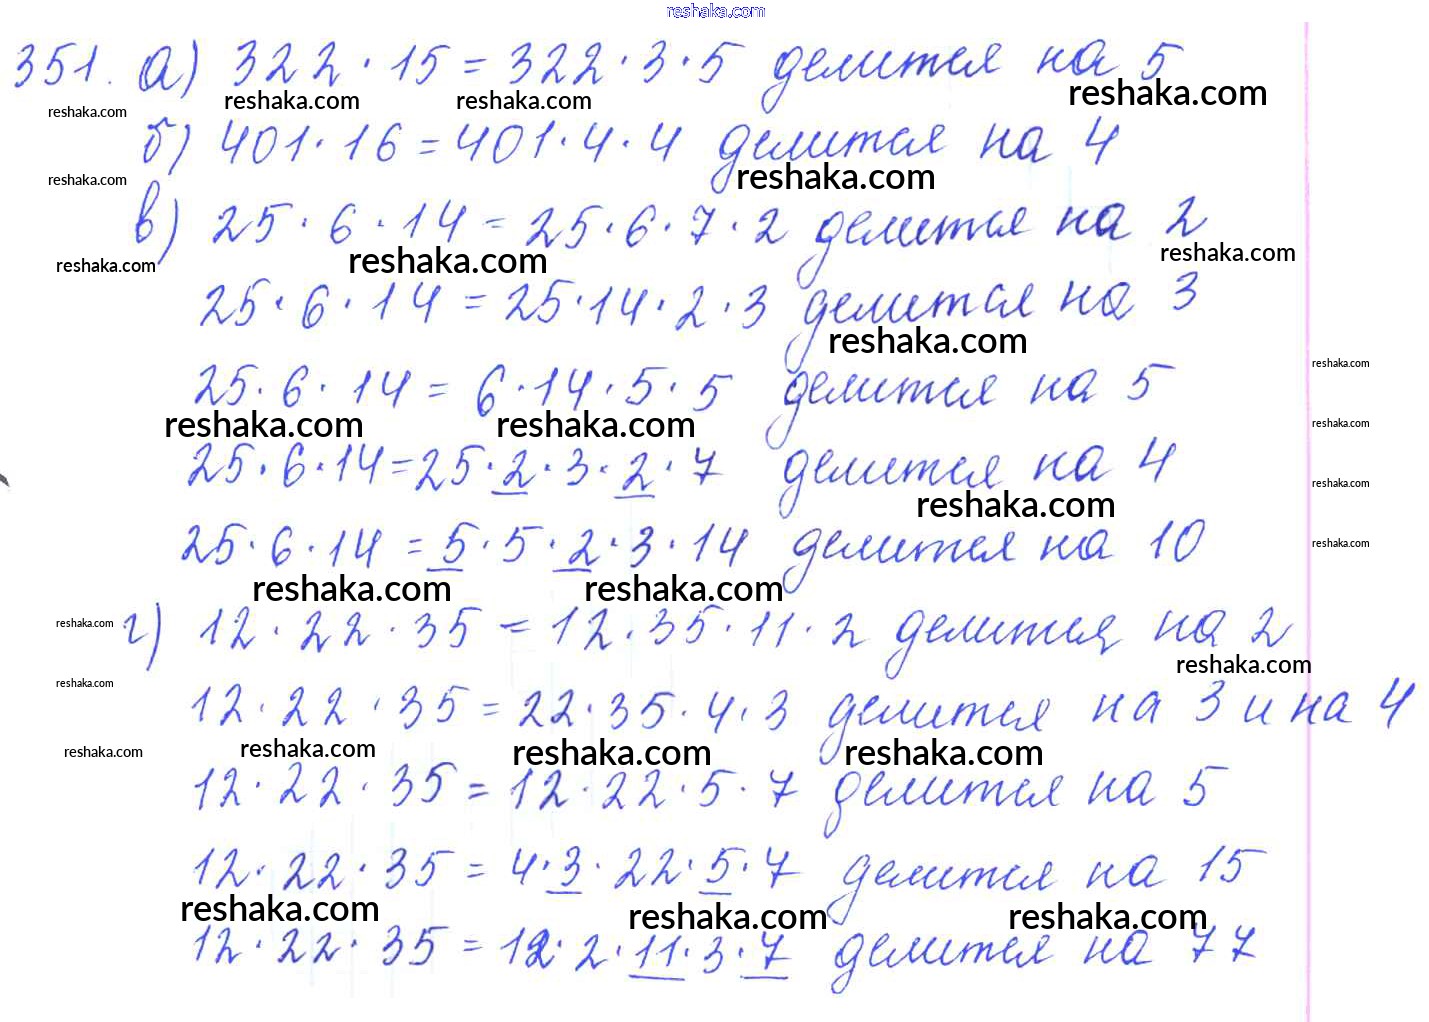 reshaka.com
351. а) 322 · 15 = 322 · 3 · 5 делится на 5
reshaka.com reshaka.com reshaka.com reshaka.com
б) 401 · 16 = 401 · 4 · 4 делится на 4
reshaka.com reshaka.com
в) 25 · 6 · 14 = 25 · 6 · 7 · 2 делится на 2
reshaka.com reshaka.com reshaka.com
25 · 6 · 14 = 25 · 14 · 2 · 3 делится на 3
reshaka.com
reshaka.com
25 · 6 · 14 = 6 · 14 · 5 · 5 делится на 5
reshaka.com reshaka.com reshaka.com
25 · 6 · 14 = 25 · 2 · 3 · 2 · 7 делится на 4
reshaka.com reshaka.com
25 · 6 · 14 = 5 · 5 · 2 · 3 · 14 делится на 10
reshaka.com
reshaka.com reshaka.com
reshaka.com
г) 12 · 22 · 35 = 12 · 35 · 11 · 2 делится на 2
reshaka.com
reshaka.com
12 · 22 · 35 = 22 · 35 · 4 · 3 делится на 3 и на 4
reshaka.com reshaka.com reshaka.com reshaka.com
12 · 22 · 35 = 12 · 22 · 5 · 7 делится на 5
12 · 22 · 35 = 4 · 3 · 22 · 5 · 7 делится на 15
reshaka.com reshaka.com reshaka.com
12 · 22 · 35 = 12 · 2 · 11 · 3 · 7 делится на 77